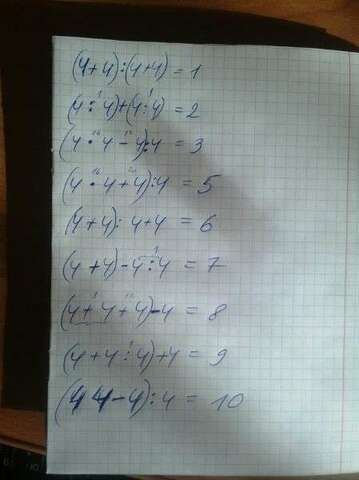 (4+4):(4+4)=1
(4:4)+(4:4)=2
(4·4-4):4=3
(4·4+4):4=5
(4+4):4+4=6
(4+4)-4:4=7
(4+4+4)-4=8
(4+4:4)+4=9
(44-4):4=10